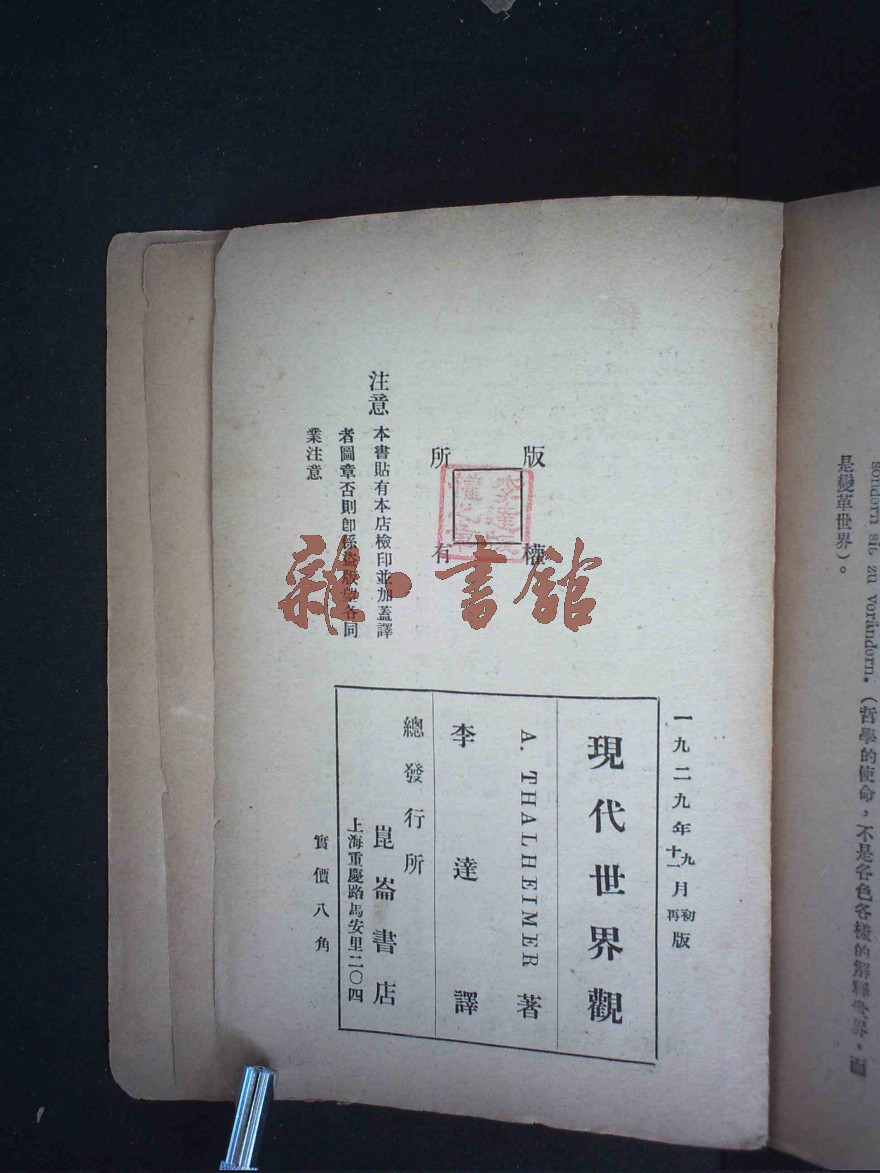 sondern sie zu verändern. (哲學的使命，不是各色各樣的解釋世界，而
是變革世界)。
一九二九年九月初版
十一 再
現代世界觀
A. THALHEIMER 著
李達譯
總發行所
崑崙書店
上海重慶路馬安里二〇四
實價八角
版權
所有
李達版
權之章
注意 本書貼有本店檢印並加蓋譯
者圖章否則卽係盜版望各同
業注意
雜·書館